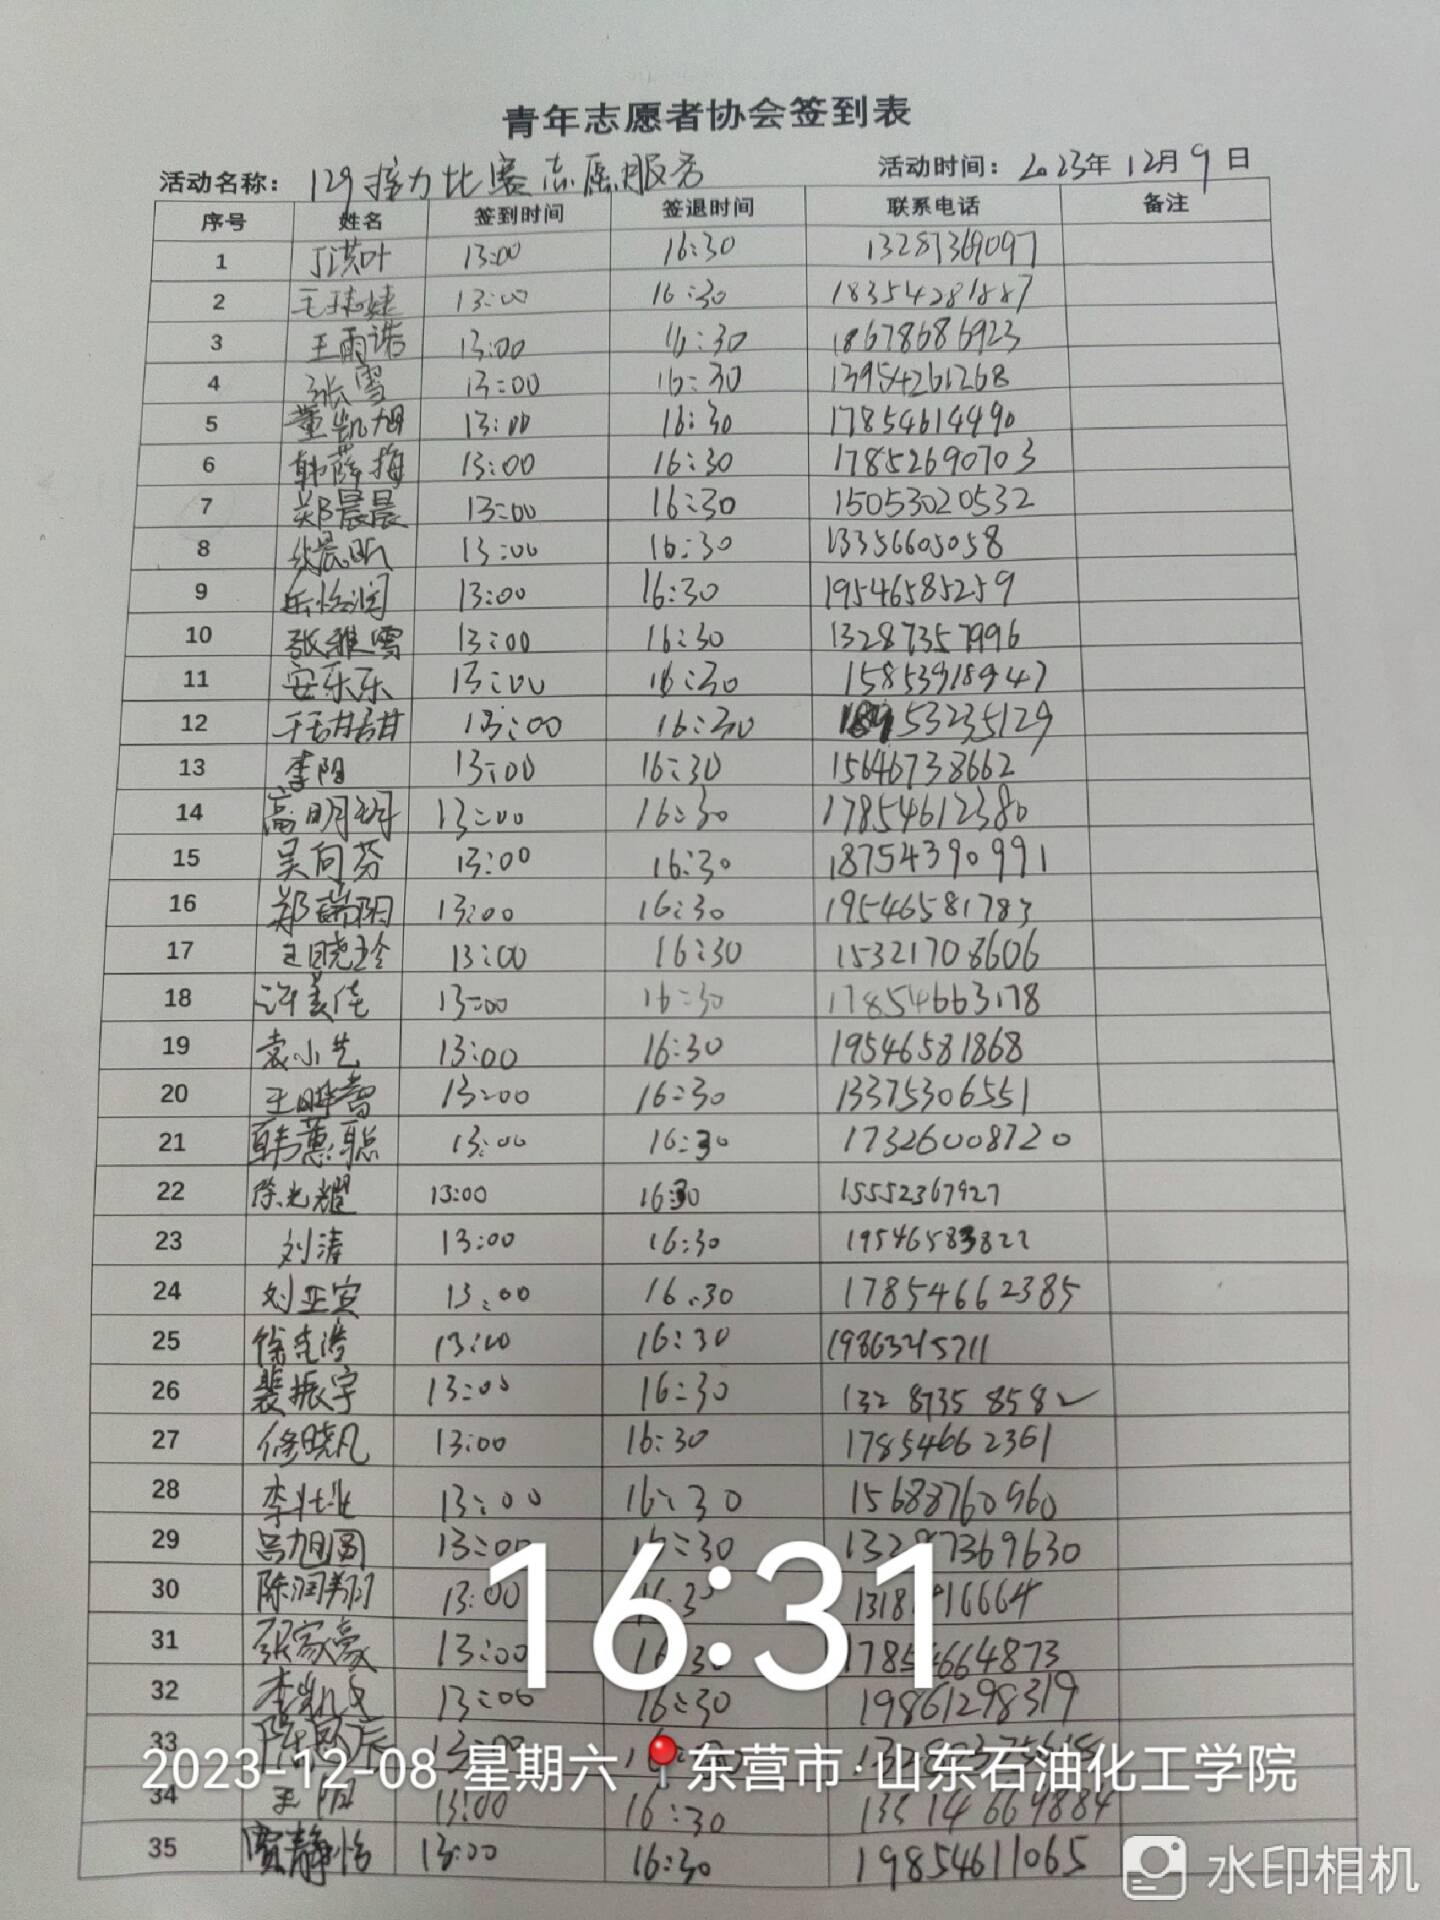 青年志愿者协会签到表
活动名称： 129接力比赛志愿服务 活动时间：2023年12月9日
序号 姓名 签到时间 签退时间 联系电话 备注
1 丁洪叶 13:00 16:30 13287369097
2 13:00 16:30 18354281887
3 王雨诺 13:00 16:30 18678686923
4 张雪 13:00 16:30 13954261268
5 董凯旭 13:00 16:30 17854614490
6 韩薛梅 13:00 16:30 17852690703
7 郑晨晨 13:00 16:30 15053020532
8 13:00 16:30 13356605058
9 13:00 16:30 19546585259
10 张雅雪 13:00 16:30 13287357996
11 安乐乐 13:00 16:30 15853918947
12 13:00 16:30 53235129
13 李阳 13:00 16:30 15646738662
14 高明玥 13:00 16:30 17854612380
15 吴向芬 13:00 16:30 18754390991
16 郑瑞阳 13:00 16:30 19546581783
17 王晓玲 13:00 16:30 15321708606
18 许美佳 13:00 16:30 17854663178
19 袁小艺 13:00 16:30 19546581868
20 13:00 16:30 13375306551
21 韩蕙聪 13:00 16:30 17326008720
22 陈光耀 13:00 16:30 15552367927
23 刘涛 13:00 16:30 19546583822
24 刘亚宾 13:00 16:30 17854662385
25 13:00 16:30 19863215711
26 裴振宇 13:00 16:30 13287358582
27 修晓凡 13:00 16:30 17854662361
28 李壮业 13:00 16:30 15688760960
29 吕旭圆 13:00 16:30 13287369630
30 陈润翔 13:00 16:30
31 张家豪 13:00 16:30 17854664873
32 李凯文 13:00 16:30 19861298319
33 13:00
34 王阳 13:00 16:30
35 贾静怡 13:00 16:30 19854611065
16:31
2023-12-08 星期六 东营市·山东石油化工学院
水印相机